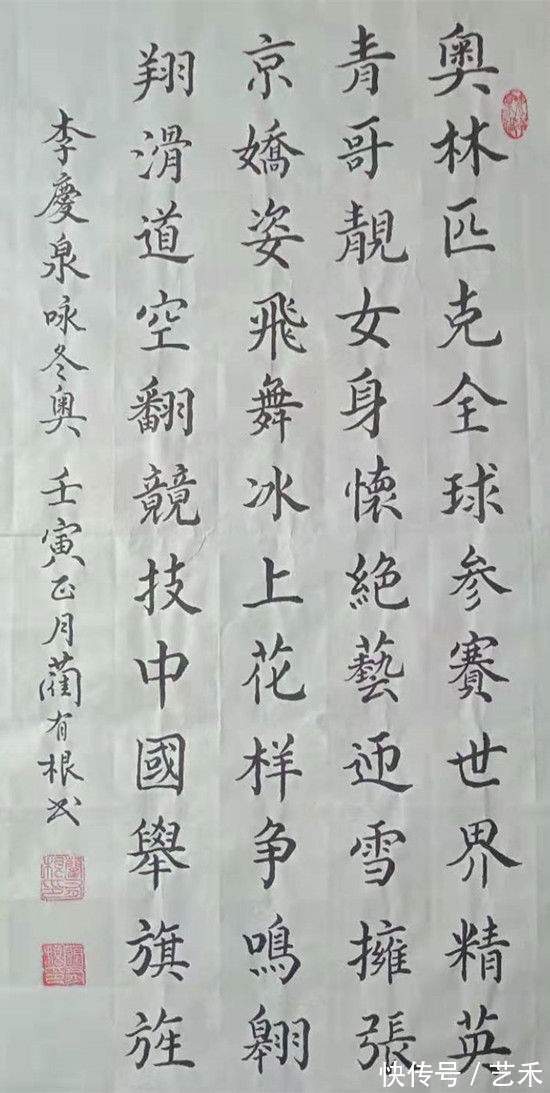 奧林匹克全球参賽世界精英
青哥靚女身懷絕藝迎雪擁張
京嬌姿飛舞冰上花样争鳴翱
翔滑道空翻競技中國舉旗旌
李慶泉咏冬奥 壬寅正月藺有根书
快传号 / 艺禾